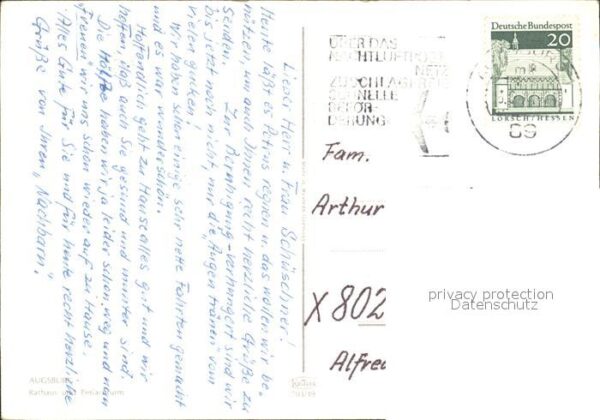 Lieber Herr u. Frau Schüschner!
Heute läßt es Petrus regnen u. das wollen wir be-
nutzen, um auch Ihnen recht herzliche Grüße zu
senden. Zur Beruhigung - verhungert sind wir
bis jetzt noch nicht, nur die "Augen tränen" vom
vielen gucken!
Wir haben schon einige sehr nette Fahrten gemacht
und es war wunderschön.
Hoffentlich geht zu Hause alles gut und wir
hoffen, daß auch Sie gesund und munter sind.
Die Hälfte haben wir ja leider schon weg und nun
"freuen" wir uns schon wieder auf zu Hause.
Alles Gute für Sie und für heute recht herzliche
Grüße von Ihren "Nachbarn".
AUGSBURG
Rathaus und Perlachturm
ÜBER DAS
NACHTLUFTPOST
NETZ
ZUSCHLAGFREI
SCHNELLE
BEFÖR-
DERUNG
Deutsche Bundespost
20
LORSCH/HESSEN
Fam.
Arthur
X 802
Alfred
privacy protection
Datenschutz